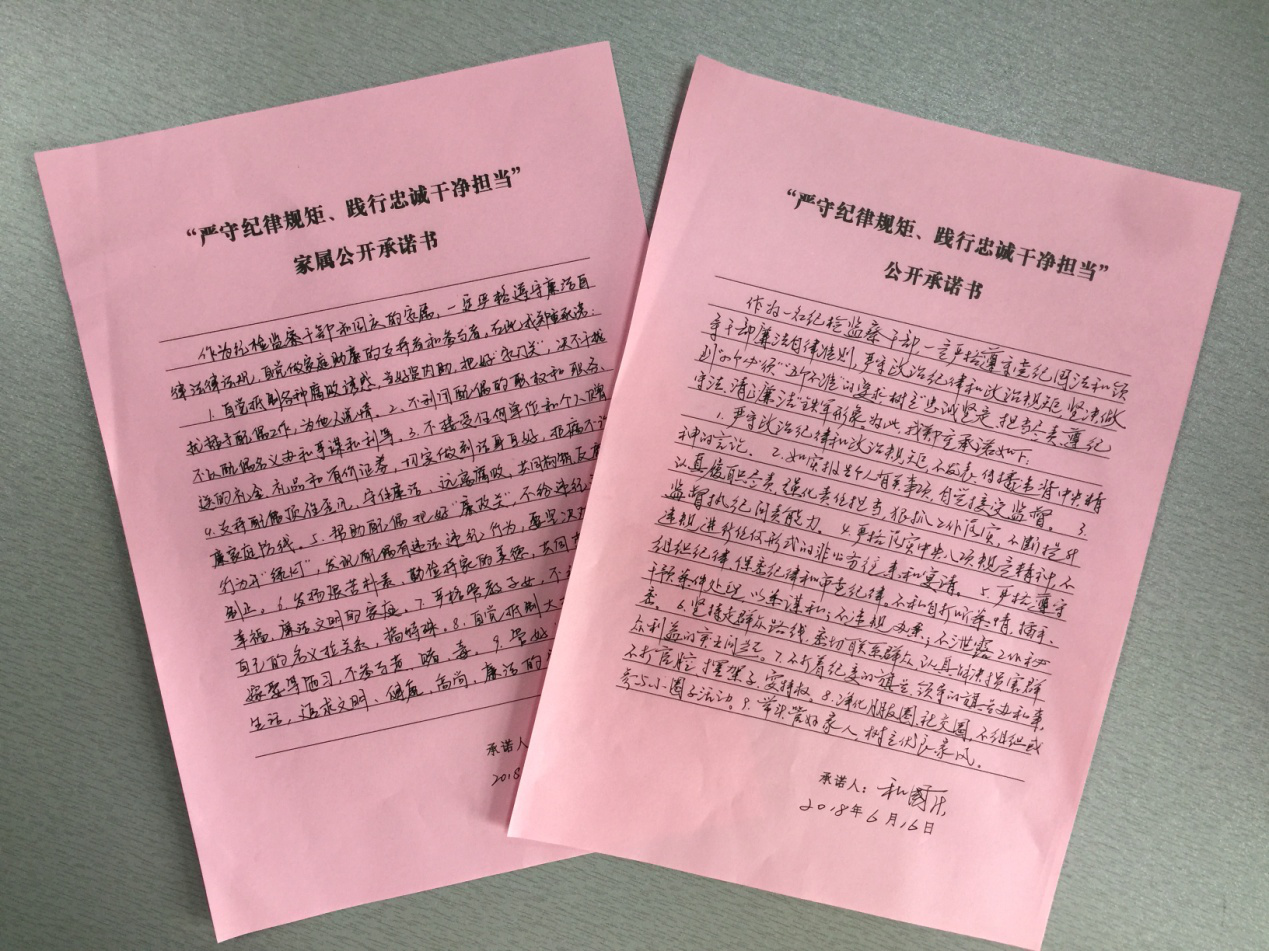 “严守纪律规矩、践行忠诚干净担当”
家属公开承诺书
作为纪检监察干部和国庆的家属，一定严格遵守廉洁自
律法律法规，自觉做家庭助廉的支持者和参与者，在此我郑重承诺：
1.自觉抵制各种腐败诱惑，当好贤内助，把好“家门关”，决不干扰
配偶工作，为他人说情。2.不利用配偶的职权和职务、
不以配偶名义办私事谋私利等。3.不接受任何单位和个人赠
送的礼金、礼品和有价证券，切实做到洁身自好，拒腐不沾
4.支持配偶顶住歪风，守住廉洁、远离腐败，共同构筑反腐
廉家庭防线。5.帮助配偶把好“廉政关”，不给违纪
行为开“绿灯”，发现配偶有违法违纪行为，要坚决
制止。6.发扬艰苦朴素、勤俭持家的美德，共同
幸福、廉洁文明的家庭。7.严格管教子女，不
自己的名义拉关系，搞特殊。8.自觉抵制大
嫁娶等陋习，不参与黄、赌、毒。9.管好
生活，追求文明、健康、高尚、廉洁的
承诺人
2018
“严守纪律规矩、践行忠诚干净担当”
公开承诺书
作为一名纪检监察干部，一定严格遵守党纪国法和领
导干部廉洁自律准则，严守政治纪律和政治规矩，坚决做
到“四个必须”“五个不准”的要求，树立“忠诚坚定、担当尽责、遵纪
守法、清正廉洁”铁军形象，为此，我郑重承诺如下：
1.严守政治纪律和政治规矩，不发表、传播违背中央精
神的言论。2.如实报告个人有关事项，自觉接受监督。3.
认真履职尽责，强化责任担当，狠抓工作落实，不断提升
监督执纪问责能力。4.严格落实中央八项规定精神，不
违规进行任何形式的非公务往来和宴请。5.严格遵守
组织纪律、保密纪律和审查纪律，不私自打听案情、插手、
干预案件处理，以案谋私；不违规办案；不泄露工作秘
密。6.坚持走群众路线，密切联系群众，认真解决损害群
众利益的突出问题。7.不打着纪委的旗号、领导的旗号办私事，
不打官腔、摆架子、耍特权。8.净化朋友圈、社交圈，不组织或
参与小圈子活动。9.带头管好家人，树立优良家风。
承诺人：和国庆
2018年6月16日